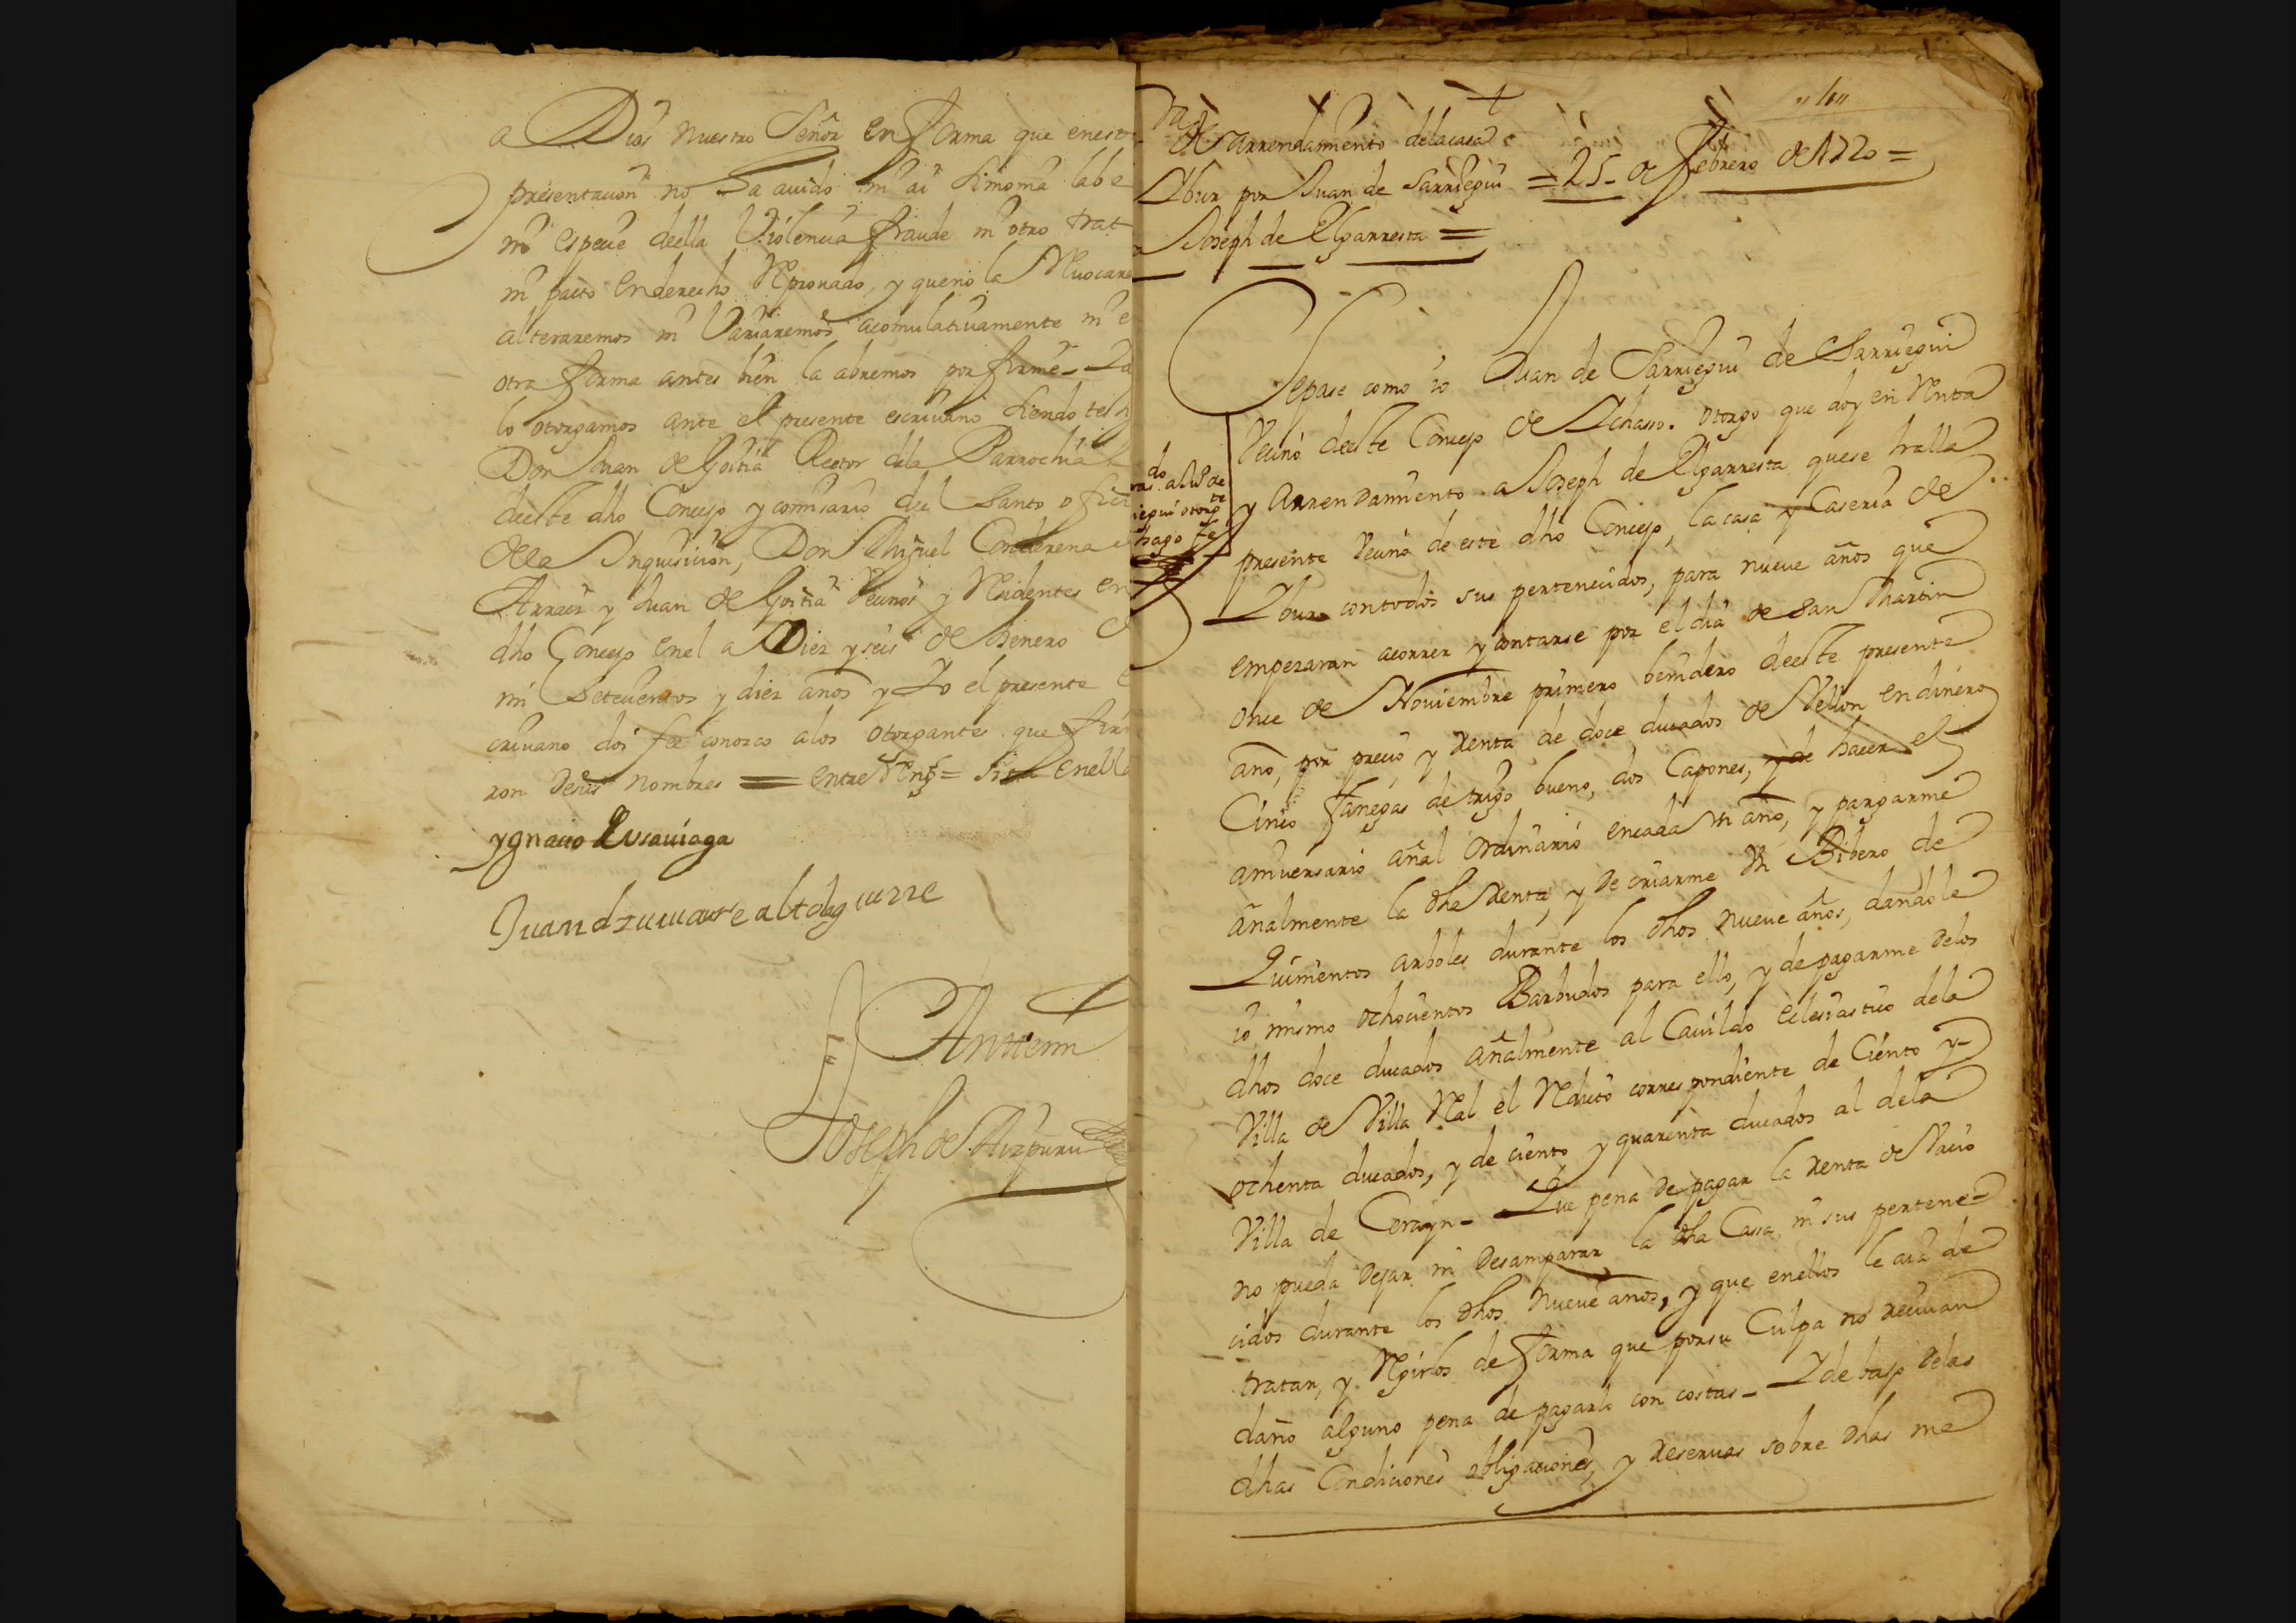 a Dios nuestro Señor en forma que en esta
presentacion no ha auido ni ai simonia labe
ni especie de ella Violencia fraude ni otro trat
ni pacto en derecho Reprouado, y que no la Reuocare
alteraremos ni Variaremos acomulatiuamente ni e
otra forma antes bien la abremos por firme - Ya
lo otorgamos ante el presente escriuano siendo testig
Don Juan de Goitia Rector dela Parrochia
deeste dho Concejo y comisario del Santo ofiçi
dela Inquisicion, Don Miguel
y Juan de Goitia Vecinos y Residentes en
dho Concejo enel a Diez y seis de Henero
mi Setecientos y diez años y Yo el presente e
criuano doi fee conozco a los otorgantes que firm
ron de sus nombres = entre Reng.s =
ygnacio
Juan
Ante mi
Joseph de Aizpuru
" 16 "
Arrendamiento dela casa
Ybur por Juan de Sarriegui = 25 - de febrero de 1720 =
a Joseph de Elgarresta =
Sepase como io Juan de Sarriegui de Sarriegui
Vecino deeste Concejo de Ichasso. otorgo que doy en Renta
y Arrendamiento a Joseph de Elgarresta que se halla
presente Vecino de este dho Concejo, la casa y Caseria de
Ybur con todos sus pertenecidos, para nueue años que
empezaran acorrer y contarse por el dia de San Martin
once de Noviembre primero benidero deeste presente
año, por precio y renta de doce ducados de Vellon en dinero
Cinco fanegas de trigo bueno, dos Capones, y de hacer el
aniuersario añal ordinario en cada Vn año, y pargarme
añalmente la dha renta, y de criarme Vn Bibero de
Quinientos arboles durante los dhos nueue años, dandole
io mismo ochocientos Barbudos para ello, y de pagarme delos
dhos doce ducados añalmente al Cauildo eclesiastico dela
Villa de Villa Real el Redito correspondiente de Ciento y
ochenta ducados, y de ciento y quarenta ducados al dela
Villa de Cerayn - Que pena de pagar la renta de Vacio
no pueda dejar ni Desamparar la dha Casa ni sus pertene-
cidos durante los dhos nueue años, y que enellos le aia de
tratar, y Regirlos de forma que por su Culpa no reciuan
daño alguno pena de pagarlo con costas - Y de bajo delas
dhas Condiciones obligaciones, y reseruas sobre dhas me
do
otorgte
hago fe